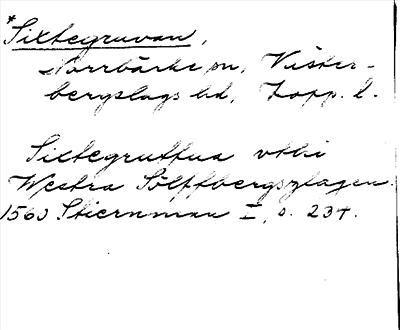 *Sixtegruvan,
Norrbärke sn, Väster-
bergslags hd, Kopp. l.
Sixtegruffua vthi
Westra Sölffbergszlagen.
1563 Stiernman I, s. 234.